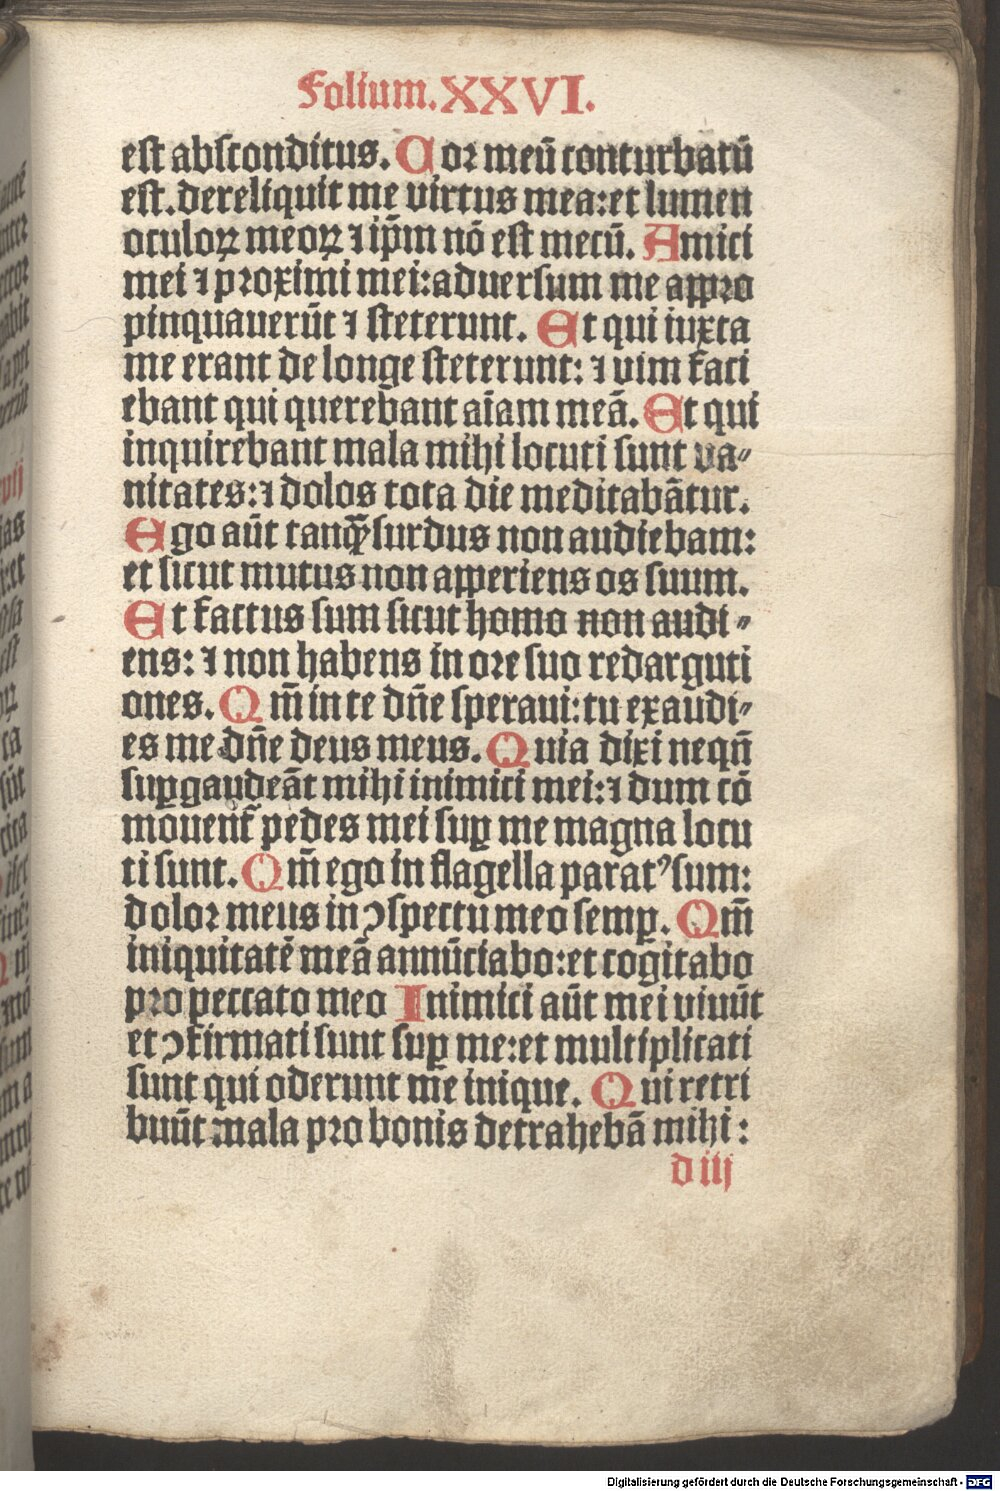 Folium.XXVI.
est absconditus. Cor meū conturbatū
est.dereliquit me virtus mea:et lumen
oculoꝝ meoꝝ ⁊ ip̄m nō est mecū. Amici
mei ⁊ proximi mei:aduersum me appro
pinquauerūt ⁊ steterunt. Et qui iuxta
me erant de longe steterunt: ⁊ vim faci
ebant qui querebant aīam meā. Et qui
inquirebant mala mihi locuti sunt va⸗
nitates:⁊ dolos tota die meditabātur.
Ego aūt tanqꝫ surdus non audiebam:
et sicut mutus non apperiens os suum.
Et factus sum sicut homo non audi⸗
ens: ⁊ non habens in ore suo redarguti
ones. Qm̄ in te dn̄e speraui:tu exaudi⸗
es me dn̄e deus meus. Quia dixi neqn̄
suꝑgaudeāt mihi inimici mei:⁊ dum cō
mouent̄ pedes mei suꝑ me magna locu
ti sunt. Qm̄ ego in flagella parat⁹ sum:
dolor meus in ꝯspectu meo semꝑ. Qm̄
iniquitatē meā annūciabo:et cogitabo
pro peccato meo Inimici aūt mei viuūt
et ꝯfirmati sunt suꝑ me:et multiplicati
sunt qui oderunt me inique. Qui retri
buūt mala pro bonis detrahebā mihi :
d iij
Digitalisierung gefördert durch die Deutsche Forschungsgemeinschaft - DFG